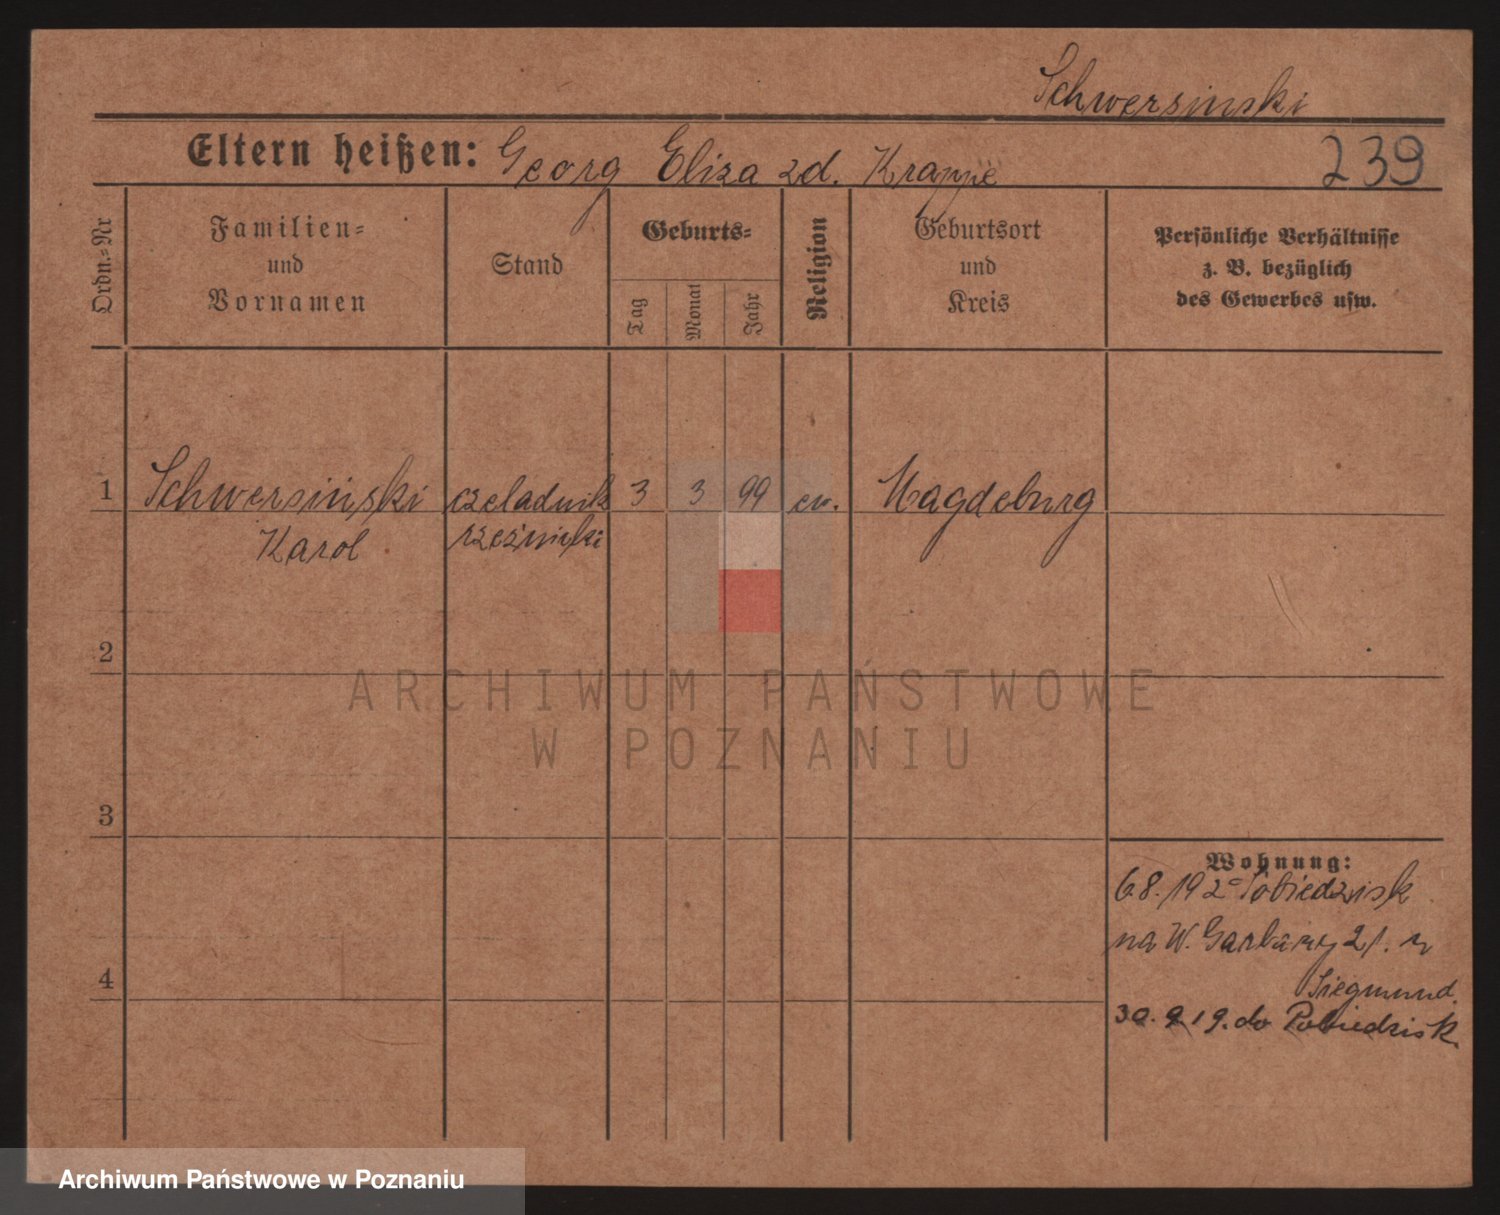 Schwersinski
Eltern heißen: Georg Eliza zd. Krappe 239
Ordn.=Nr
Familien=
und
Vornamen
Stand
Geburts=
Tag
Monat
Jahr
Religion
Geburtsort
und
Kreis
Persönliche Verhältnisse
z. B. bezüglich
des Gewerbes usw.
1 Schwersiński czeladnik 3 3 99 ew. Magdeburg
Karol rzeźnicki
2
3
4
Wohnung:
6.8.192 Pobiedzisk
na W. Garbary 21.
Siegmund.
30. 9 19. do Pobiedzisk.
ARCHIWUM PAŃSTWOWE
W POZNANIU
Archiwum Państwowe w Poznaniu